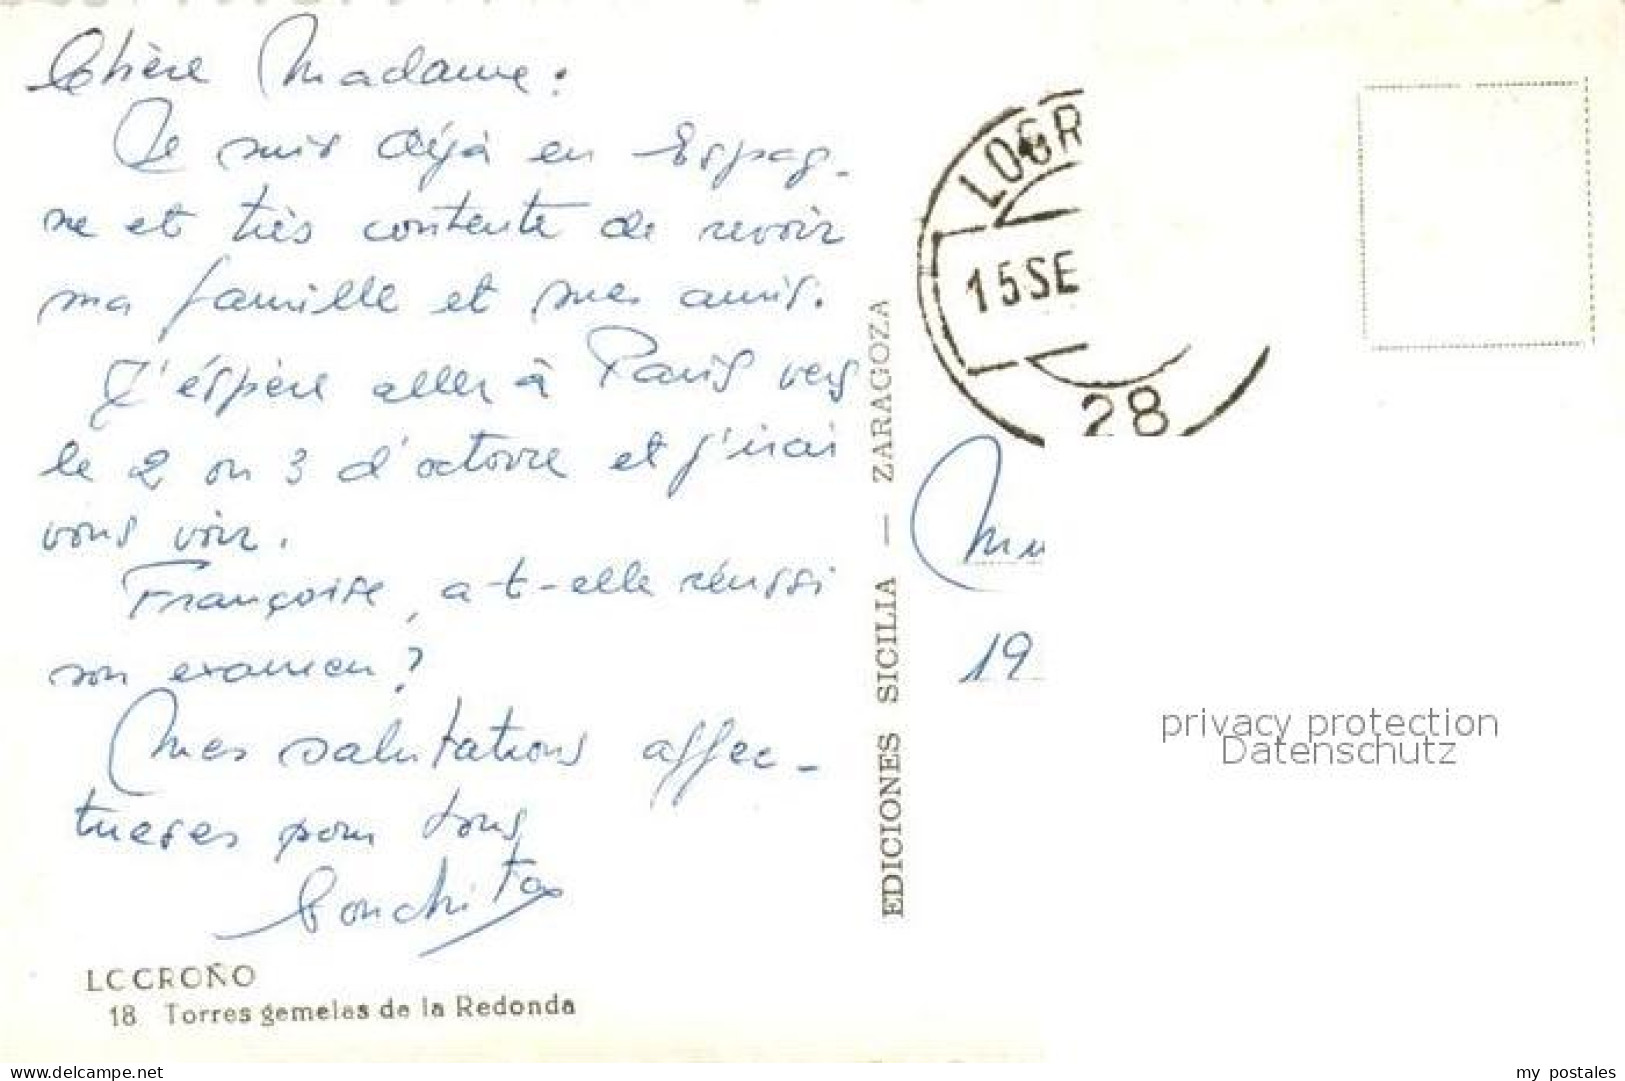 Chère Madame:
Je suis déjà en Espag-
ne et très contente de revoir
ma famille et mes amis.
J'éspère aller à Paris vers
le 2 ou 3 d'octovre et j'irai
vous voir.
Françoise, a-t-elle réussi
son examen?
Mes salutations affec-
tueses pour tous
Conchita
LOGROÑO
18 Torres gemelas de la Redonda
EDICIONES SICILIA — ZARAGOZA
LOGR
15 SE
28
19
privacy protection
Datenschutz
delcampe.net
my_postales